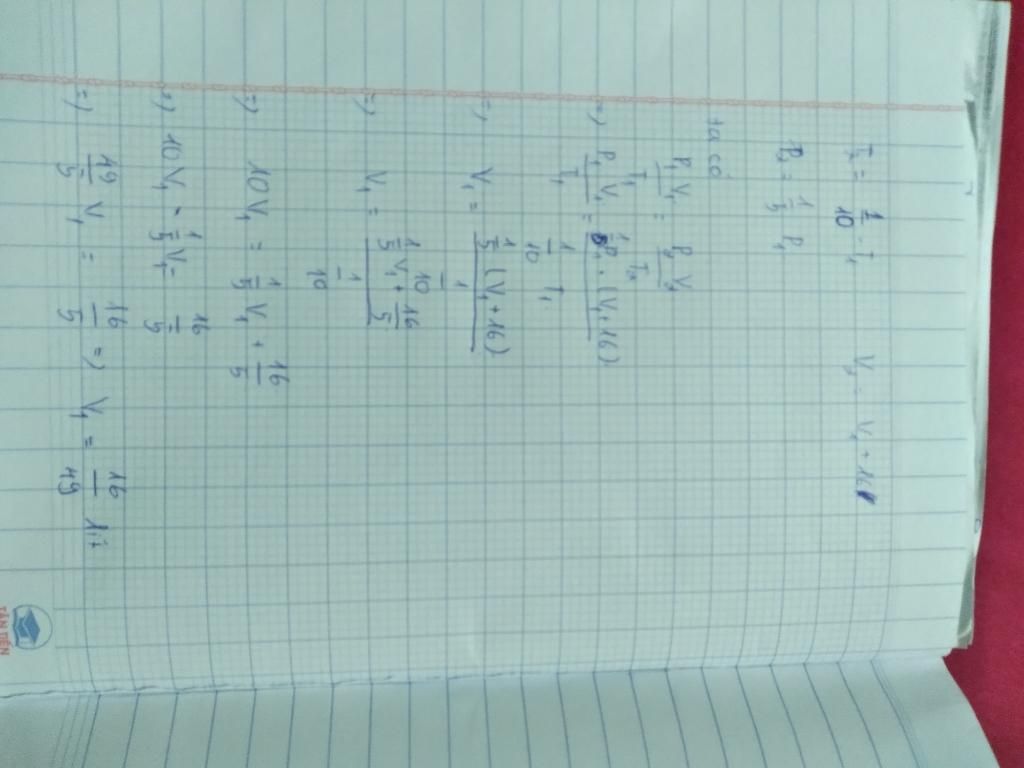 T₂ = 1/10 . T₁ V₂ = V₁ + 16
P₂ = 1/5 P₁
ta có
P₁V₁/T₁ = P₂V₂/T₂
=) P₁V₁/T₁ = 1/5 P₁ . (V₁ + 16) / 1/10 T₁
=) V₁ = 1/5 (V₁ + 16) / 1/10
=) V₁ = 1/5 V₁ + 16/5 / 1/10
=) 10V₁ = 1/5 V₁ + 16/5
=) 10V₁ - 1/5 V₁ = 16/5
=) 49/5 V₁ = 16/5 =) V₁ = 16/49 lít
TÂN TIẾN